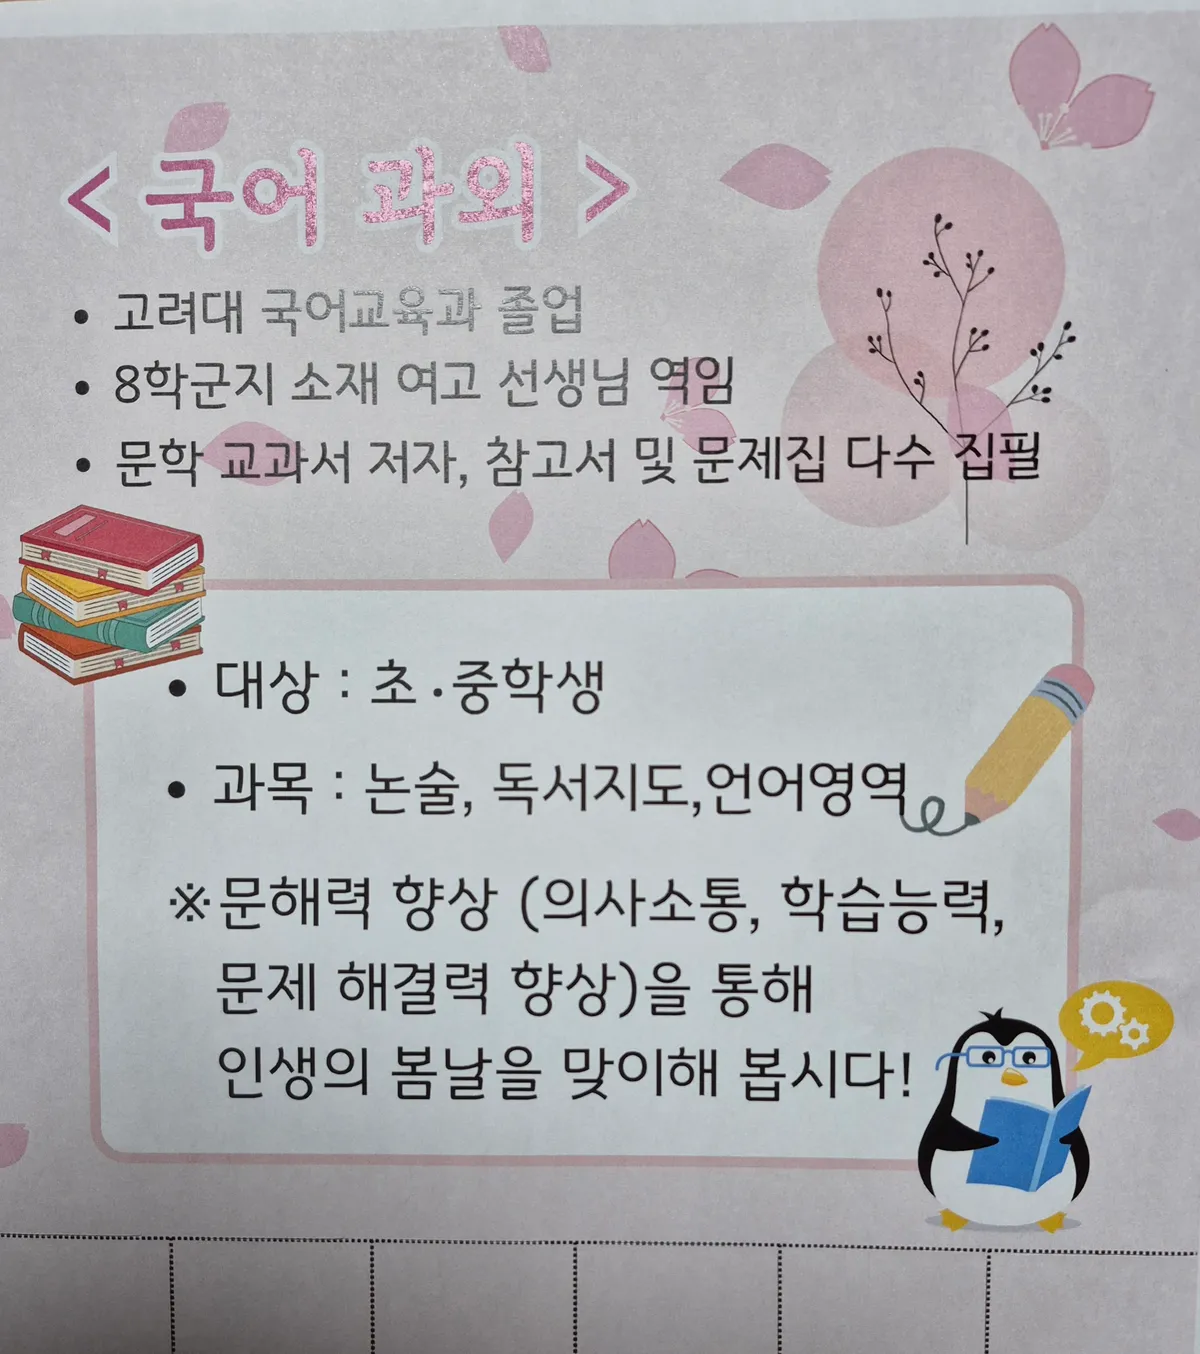 < 국어 과외 >
• 고려대 국어교육과 졸업
• 8학군지 소재 여고 선생님 역임
• 문학 교과서 저자, 참고서 및 문제집 다수 집필
• 대상 : 초·중학생
• 과목 : 논술, 독서지도,언어영역
※문해력 향상 (의사소통, 학습능력,
문제 해결력 향상)을 통해
인생의 봄날을 맞이해 봅시다!